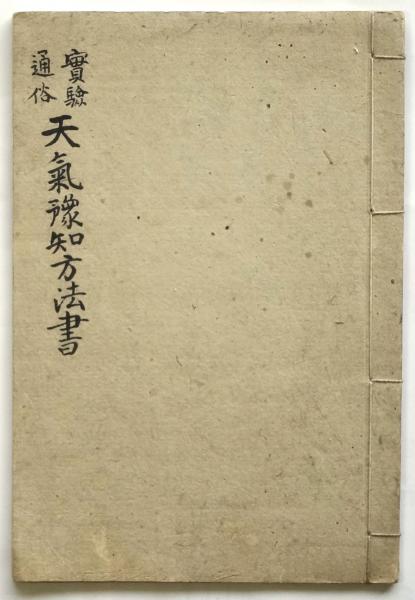 實驗
通俗
天氣豫知方法書